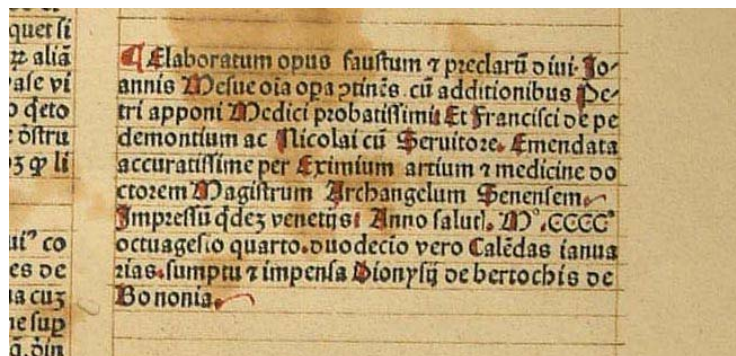 quet si
ꝝ aliā
vase vi
o q̄eto
e ōstru
oꝫ ꝙ li
ui⁹ co
es de
na cuꝫ
ne suꝑ
¶ Elaboratum opus faustum ⁊ preclarū diui Jo-
annis Mesue oīa oꝑa ꝯtinēs. cū additionibus Pe-
tri apponi Medici probatissimi: Et Francisci de pe
demontium ac Nicolai cū Seruitore. Emendata
accuratissime per Eximium artium ⁊ medicine do
ctorem Magistrum Archangelum Senensem.
Impressū q̄deꝫ venetijs: Anno saluꝭ. M°.CCCC°
octuagesīo quarto. duodecīo vero Calēdas ianua
rias. sumptu ⁊ impensa Dionysij de bertochis de
Bononia.